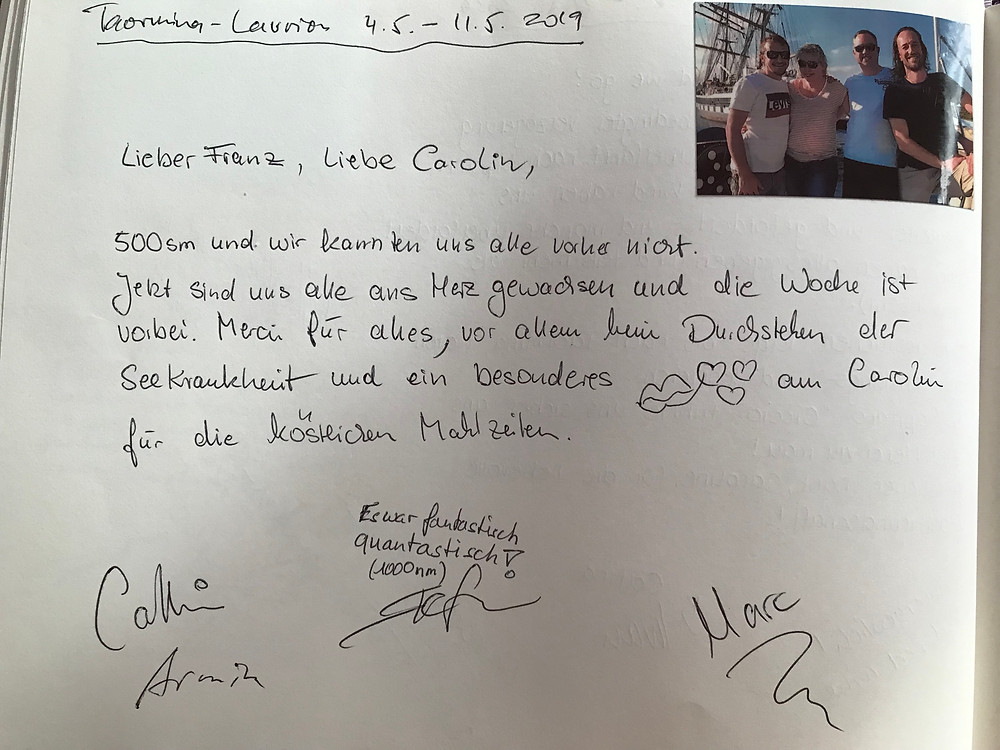 Taormina - Lavrion 4.5. – 11.5. 2019
LEVI'S
Lieber Franz, Liebe Carolin,
500sm und wir kannten uns alle vorher nicht.
Jetzt sind uns alle ans Herz gewachsen und die Woche ist
vorbei. Merci für alles, vor allem beim Durchstehen der
Seekrankheit und ein besonderes an Carolin
für die köstlichen Mahlzeiten.
Es war fantastisch
quantastisch!
(1000nm)
Armin
Marc